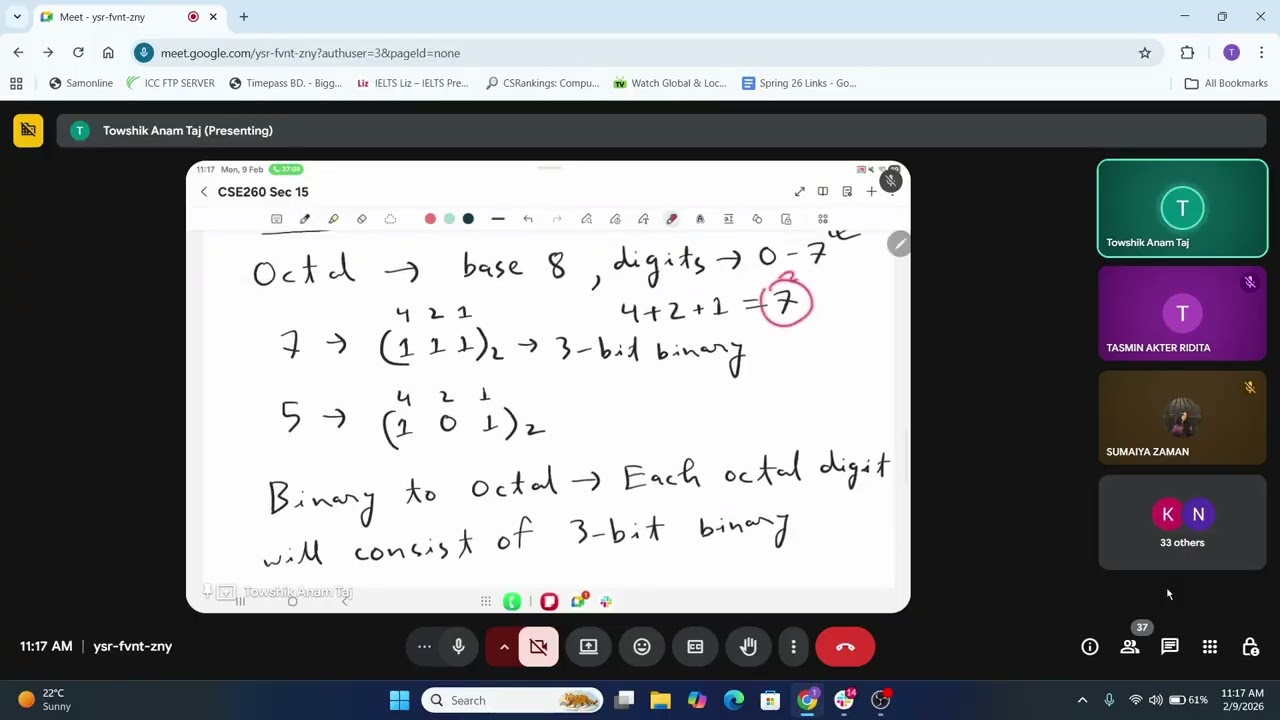 Meet - ysr-fvnt-zny
meet.google.com/ysr-fvnt-zny?authuser=3&pageId=none
Samonline
ICC FTP SERVER
Timepass BD. - Bigg...
Liz IELTS Liz – IELTS Pre...
CSRankings: Compu...
Watch Global & Loc...
Spring 26 Links - Go...
All Bookmarks
T Towshik Anam Taj (Presenting)
11:17 Mon, 9 Feb 37:04
CSE260 Sec 15
Octal → base 8, digits → 0-7
4 2 1 4+2+1 = 7
7 → (1 1 1)2 → 3-bit binary
4 2 1
5 → (1 0 1)2
Binary to Octal → Each octal digit
will consist of 3-bit binary
Towshik Anam Taj
T
Towshik Anam Taj
T
TASMIN AKTER RIDITA
SUMAIYA ZAMAN
K N
33 others
11:17 AM | ysr-fvnt-zny
37
22°C
Sunny
Search
14
61%
11:17 AM
2/9/2026